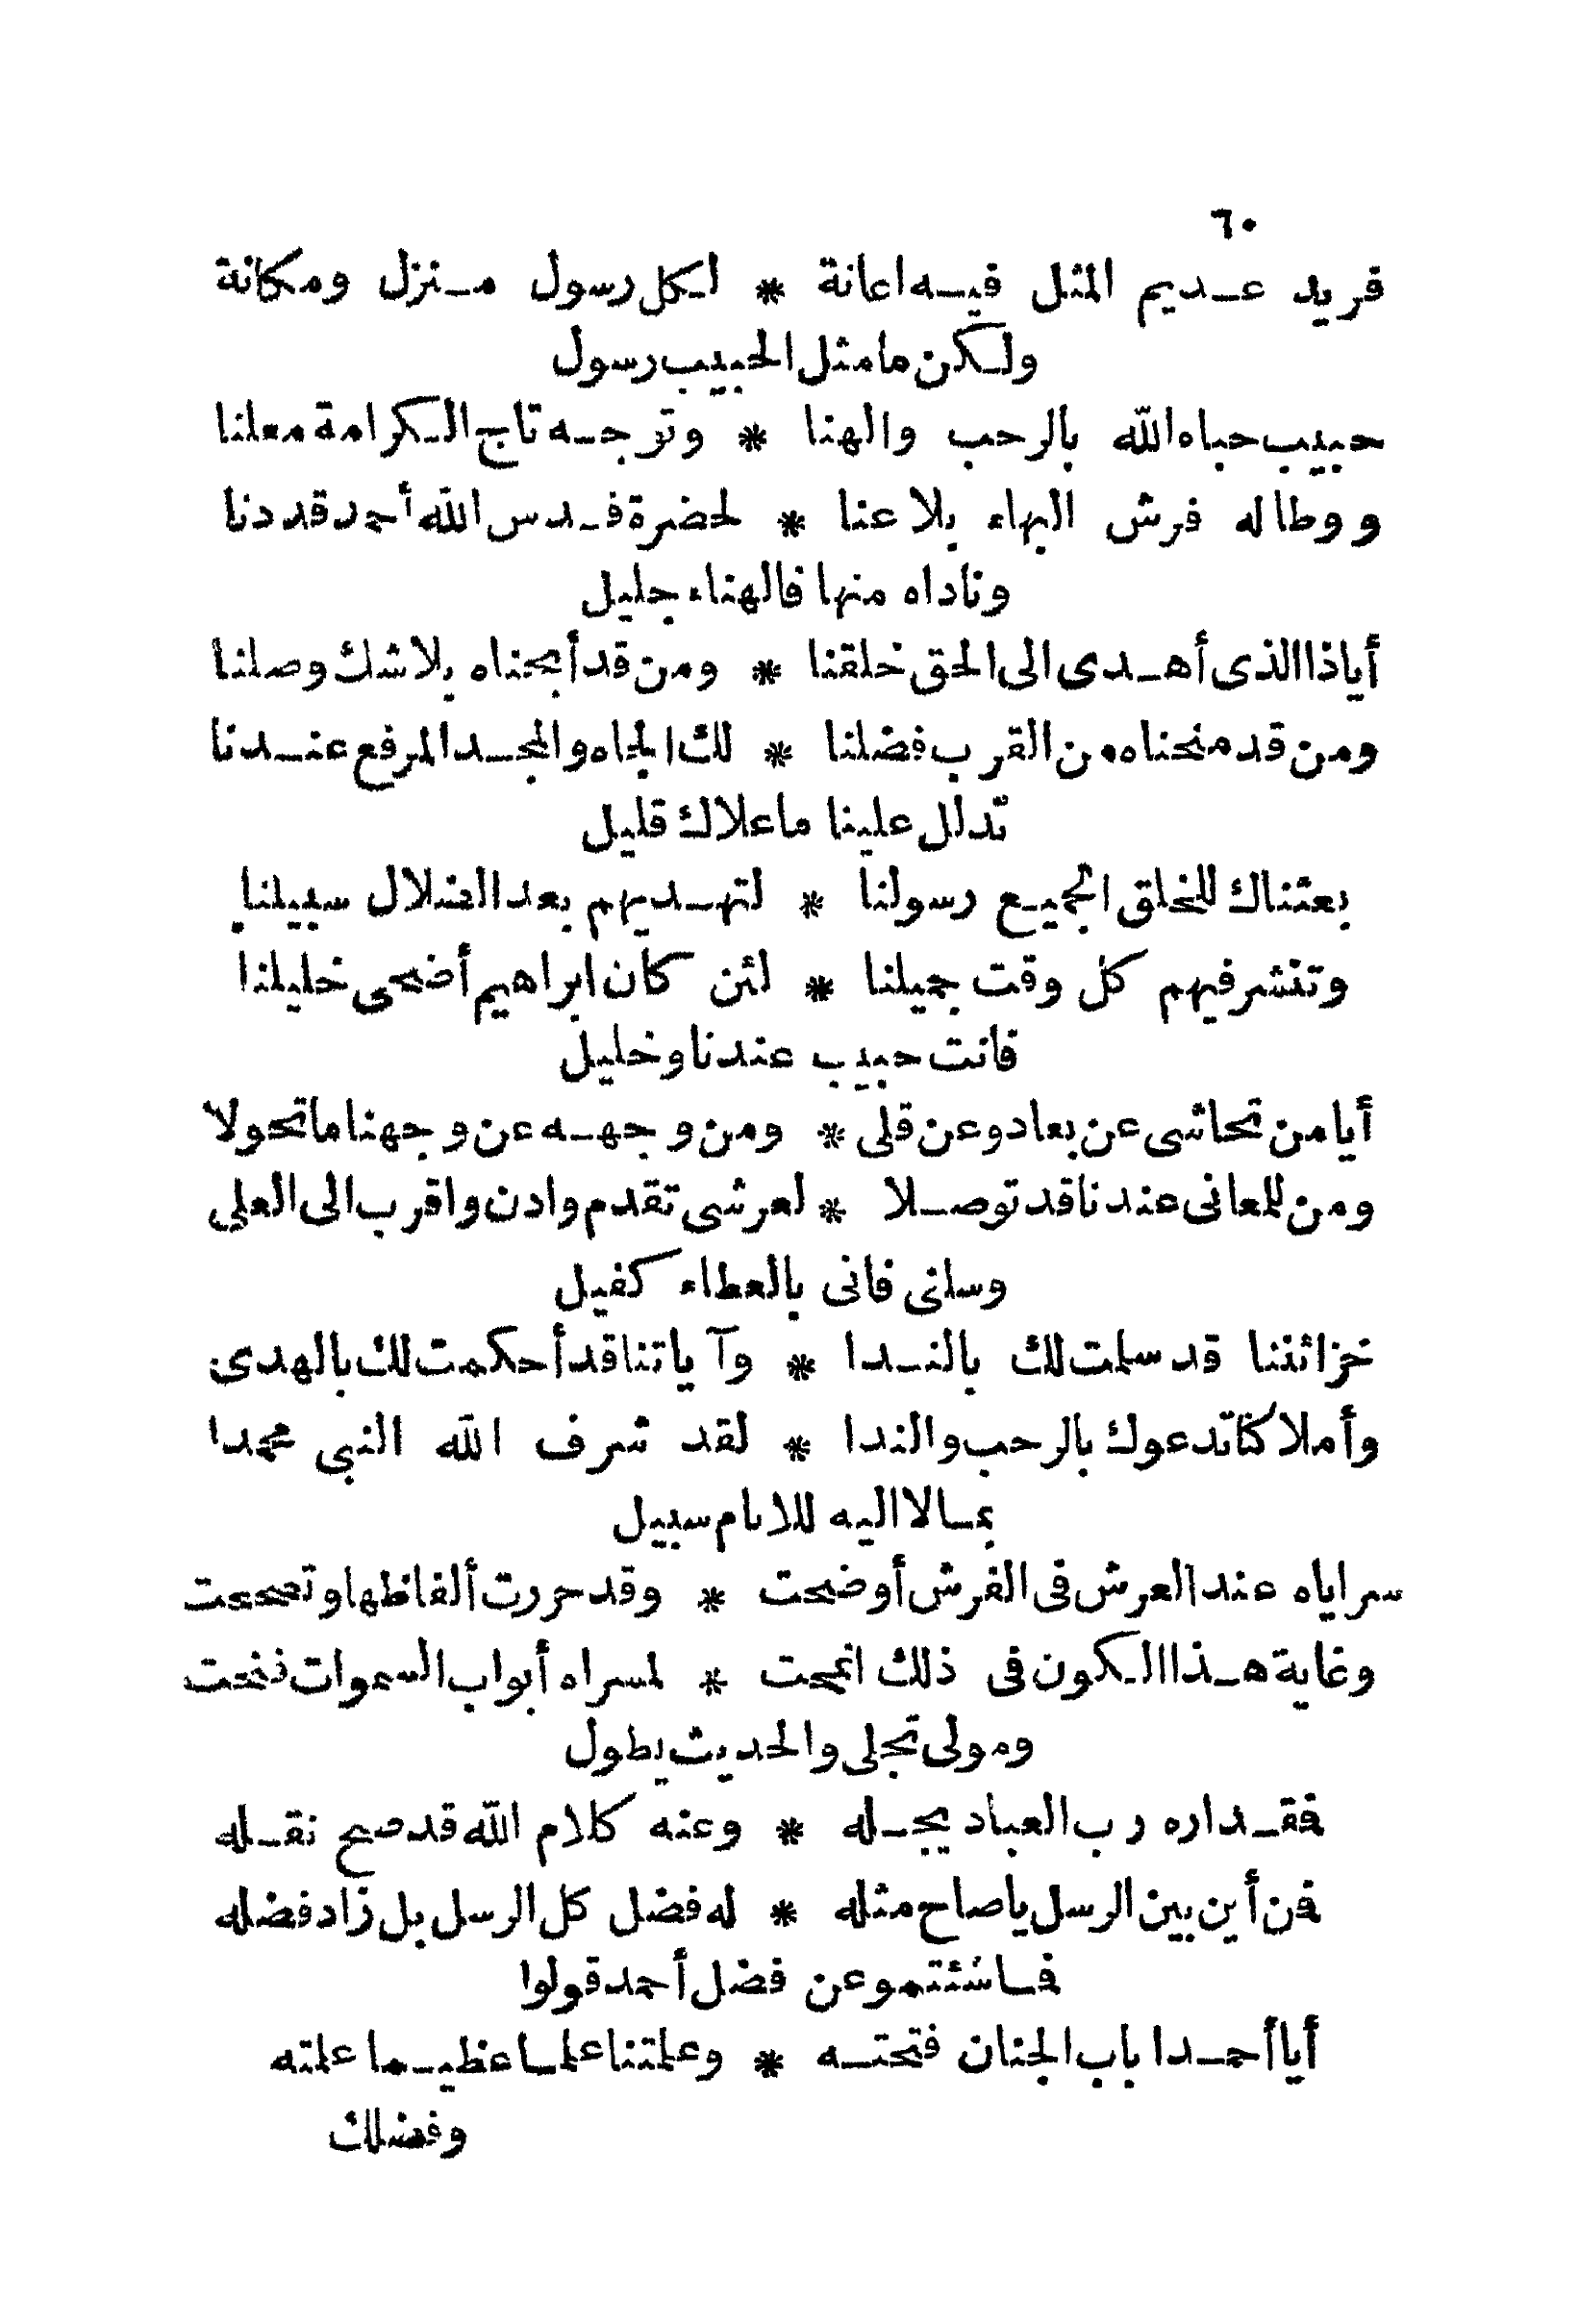 ٦٠
فريد عديم المثل فيه اعانة * لكل رسول منزل ومكانة
ولكن مامثل الحبيب رسول
حبيب حباه الله بالرحب والهنا * وتوجه تاج الكرامة معلنا
ووطاله فرش البهاء بلا عنا * لحضرة قدس الله أحمد قددنا
وناداه منها فالهناء جليل
أياذا الذى أهدى الى الحق خلقنا * ومن قد أبحناه بلا شك وصلنا
ومن قد منحناه من القرب فضلنا * لك الجاه والمجد المرفع عندنا
تدلل علينا ماعلاك قليل
بعثناك للخلق الجميع رسولنا * لتهديهم بعد الضلال سبيلنا
وتنشر فيهم كل وقت جميلنا * لئن كان ابراهيم أضحى خليلنا
فانت حبيب عندنا وخليل
أيامن تحاشى عن بعاد وعن قلى * ومن وجهه عن وجهنا ماتحولا
ومن للمعانى عندنا قد توصلا * لعرشى تقدم وادن واقرب الى العلى
وسلنى فانى بالعطاء كفيل
خزائننا قد سلمت لك بالندا * وآياتنا قد أحكمت لك بالهدى
وأملاكنا تدعوك بالرحب والندا * لقد شرف الله النبى محمدا
بمالا اليه للانام سبيل
سراياه عند العرش فى الفرش أوضحت * وقد حررت ألفاظها وتصححت
وغاية هذا الكون فى ذلك انمحت * لمسراه أبواب السموات فتحت
ومولى تجلى والحديث يطول
فقد اره رب العباد يجله * وعنه كلام الله قد صح نقله
فمن أين بين الرسل ياصاح مثله * له فضل كل الرسل بل زاد فضله
فماشئتمو عن فضل أحمد قولوا
أيا أحمدا باب الجنان فتحته * وعلمتنا علما عظيما علمته
وفضلك